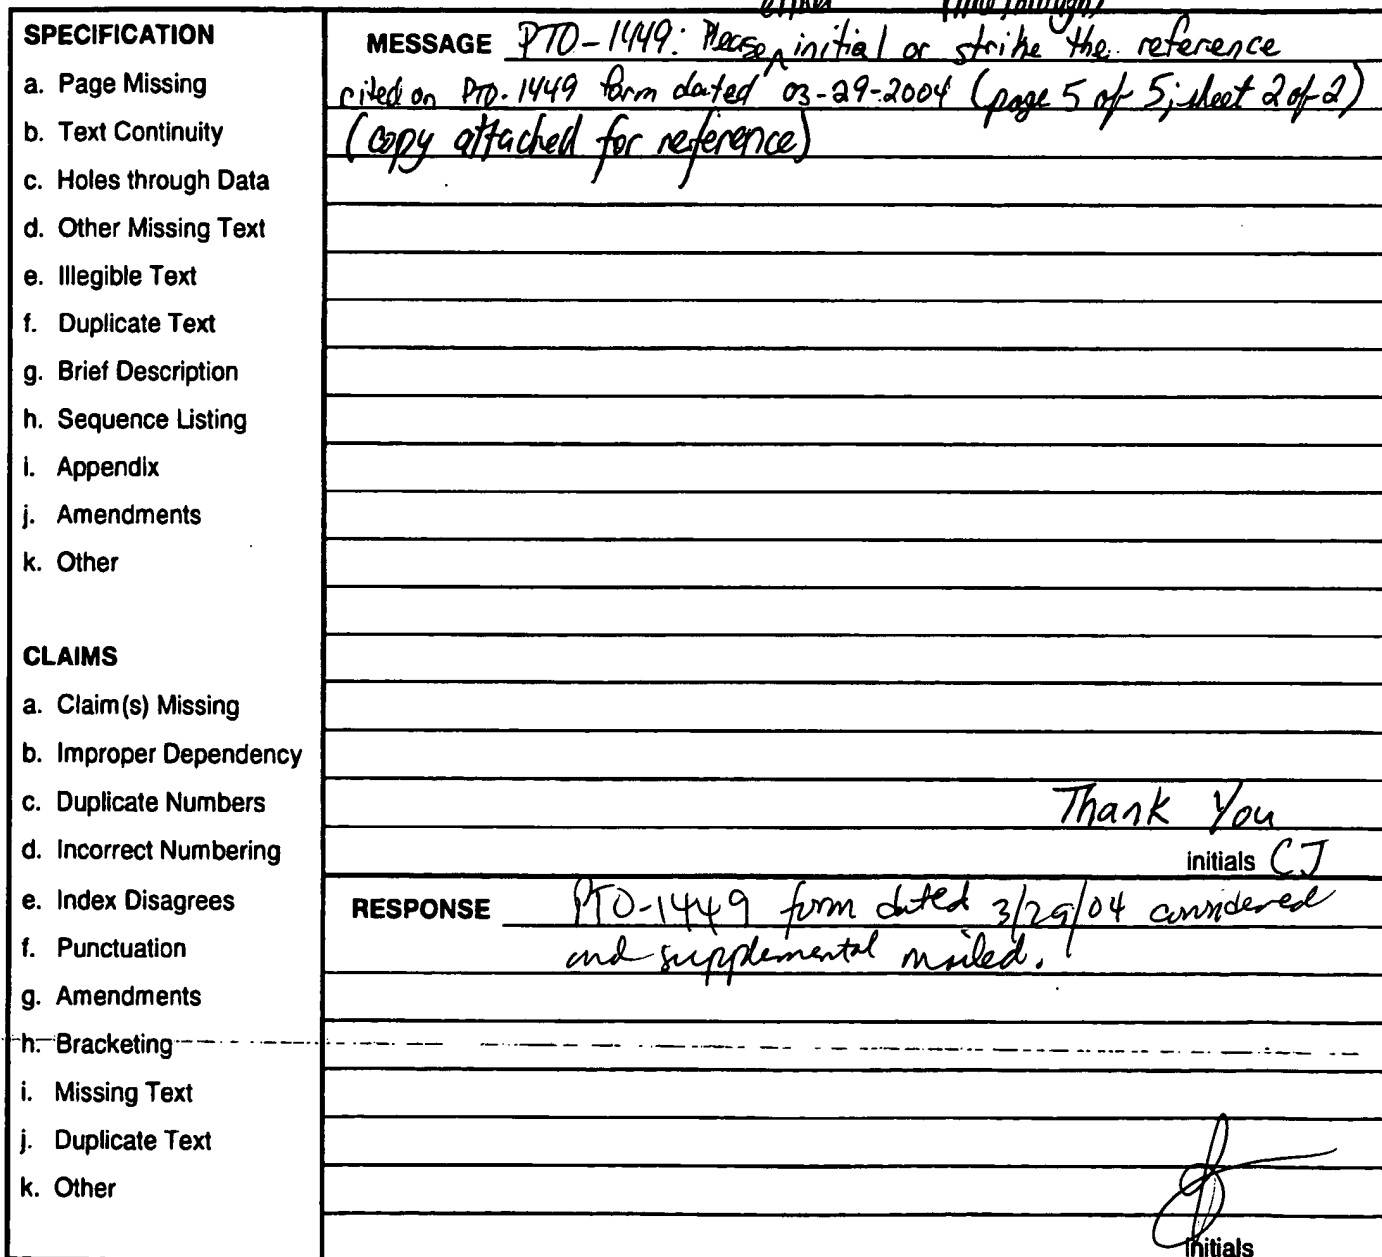 either (line through)
SPECIFICATION
a. Page Missing
b. Text Continuity
c. Holes through Data
d. Other Missing Text
e. Illegible Text
f. Duplicate Text
g. Brief Description
h. Sequence Listing
i. Appendix
j. Amendments
k. Other
CLAIMS
a. Claim(s) Missing
b. Improper Dependency
c. Duplicate Numbers
d. Incorrect Numbering
e. Index Disagrees
f. Punctuation
g. Amendments
h. Bracketing
i. Missing Text
j. Duplicate Text
k. Other
MESSAGE PTO-1449: Please initial or strike the reference
cited on PTO-1449 form dated 03-29-2004 (page 5 of 5; sheet 2 of 2)
(copy attached for reference)
Thank You
initials CJ
RESPONSE PTO-1449 form dated 3/29/04 considered
and supplemental mailed.
initials